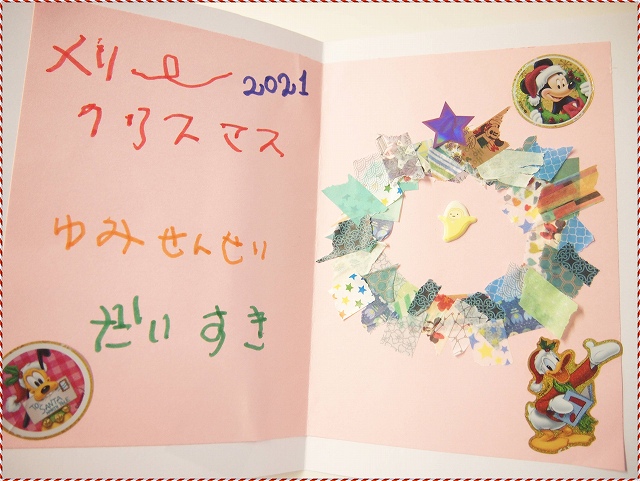 メリー 2021
クリスマス
ゆみせんせい
だいすき
SANTA